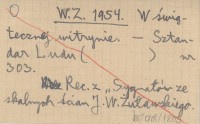 W.Z. 1954. W świą-
tecznej witrynie. — Sztan-
dar Ludu ( ) nr
303.
Rec. z „Sygnałów ze
skalnych ścian" J. W. Żuławskiego.